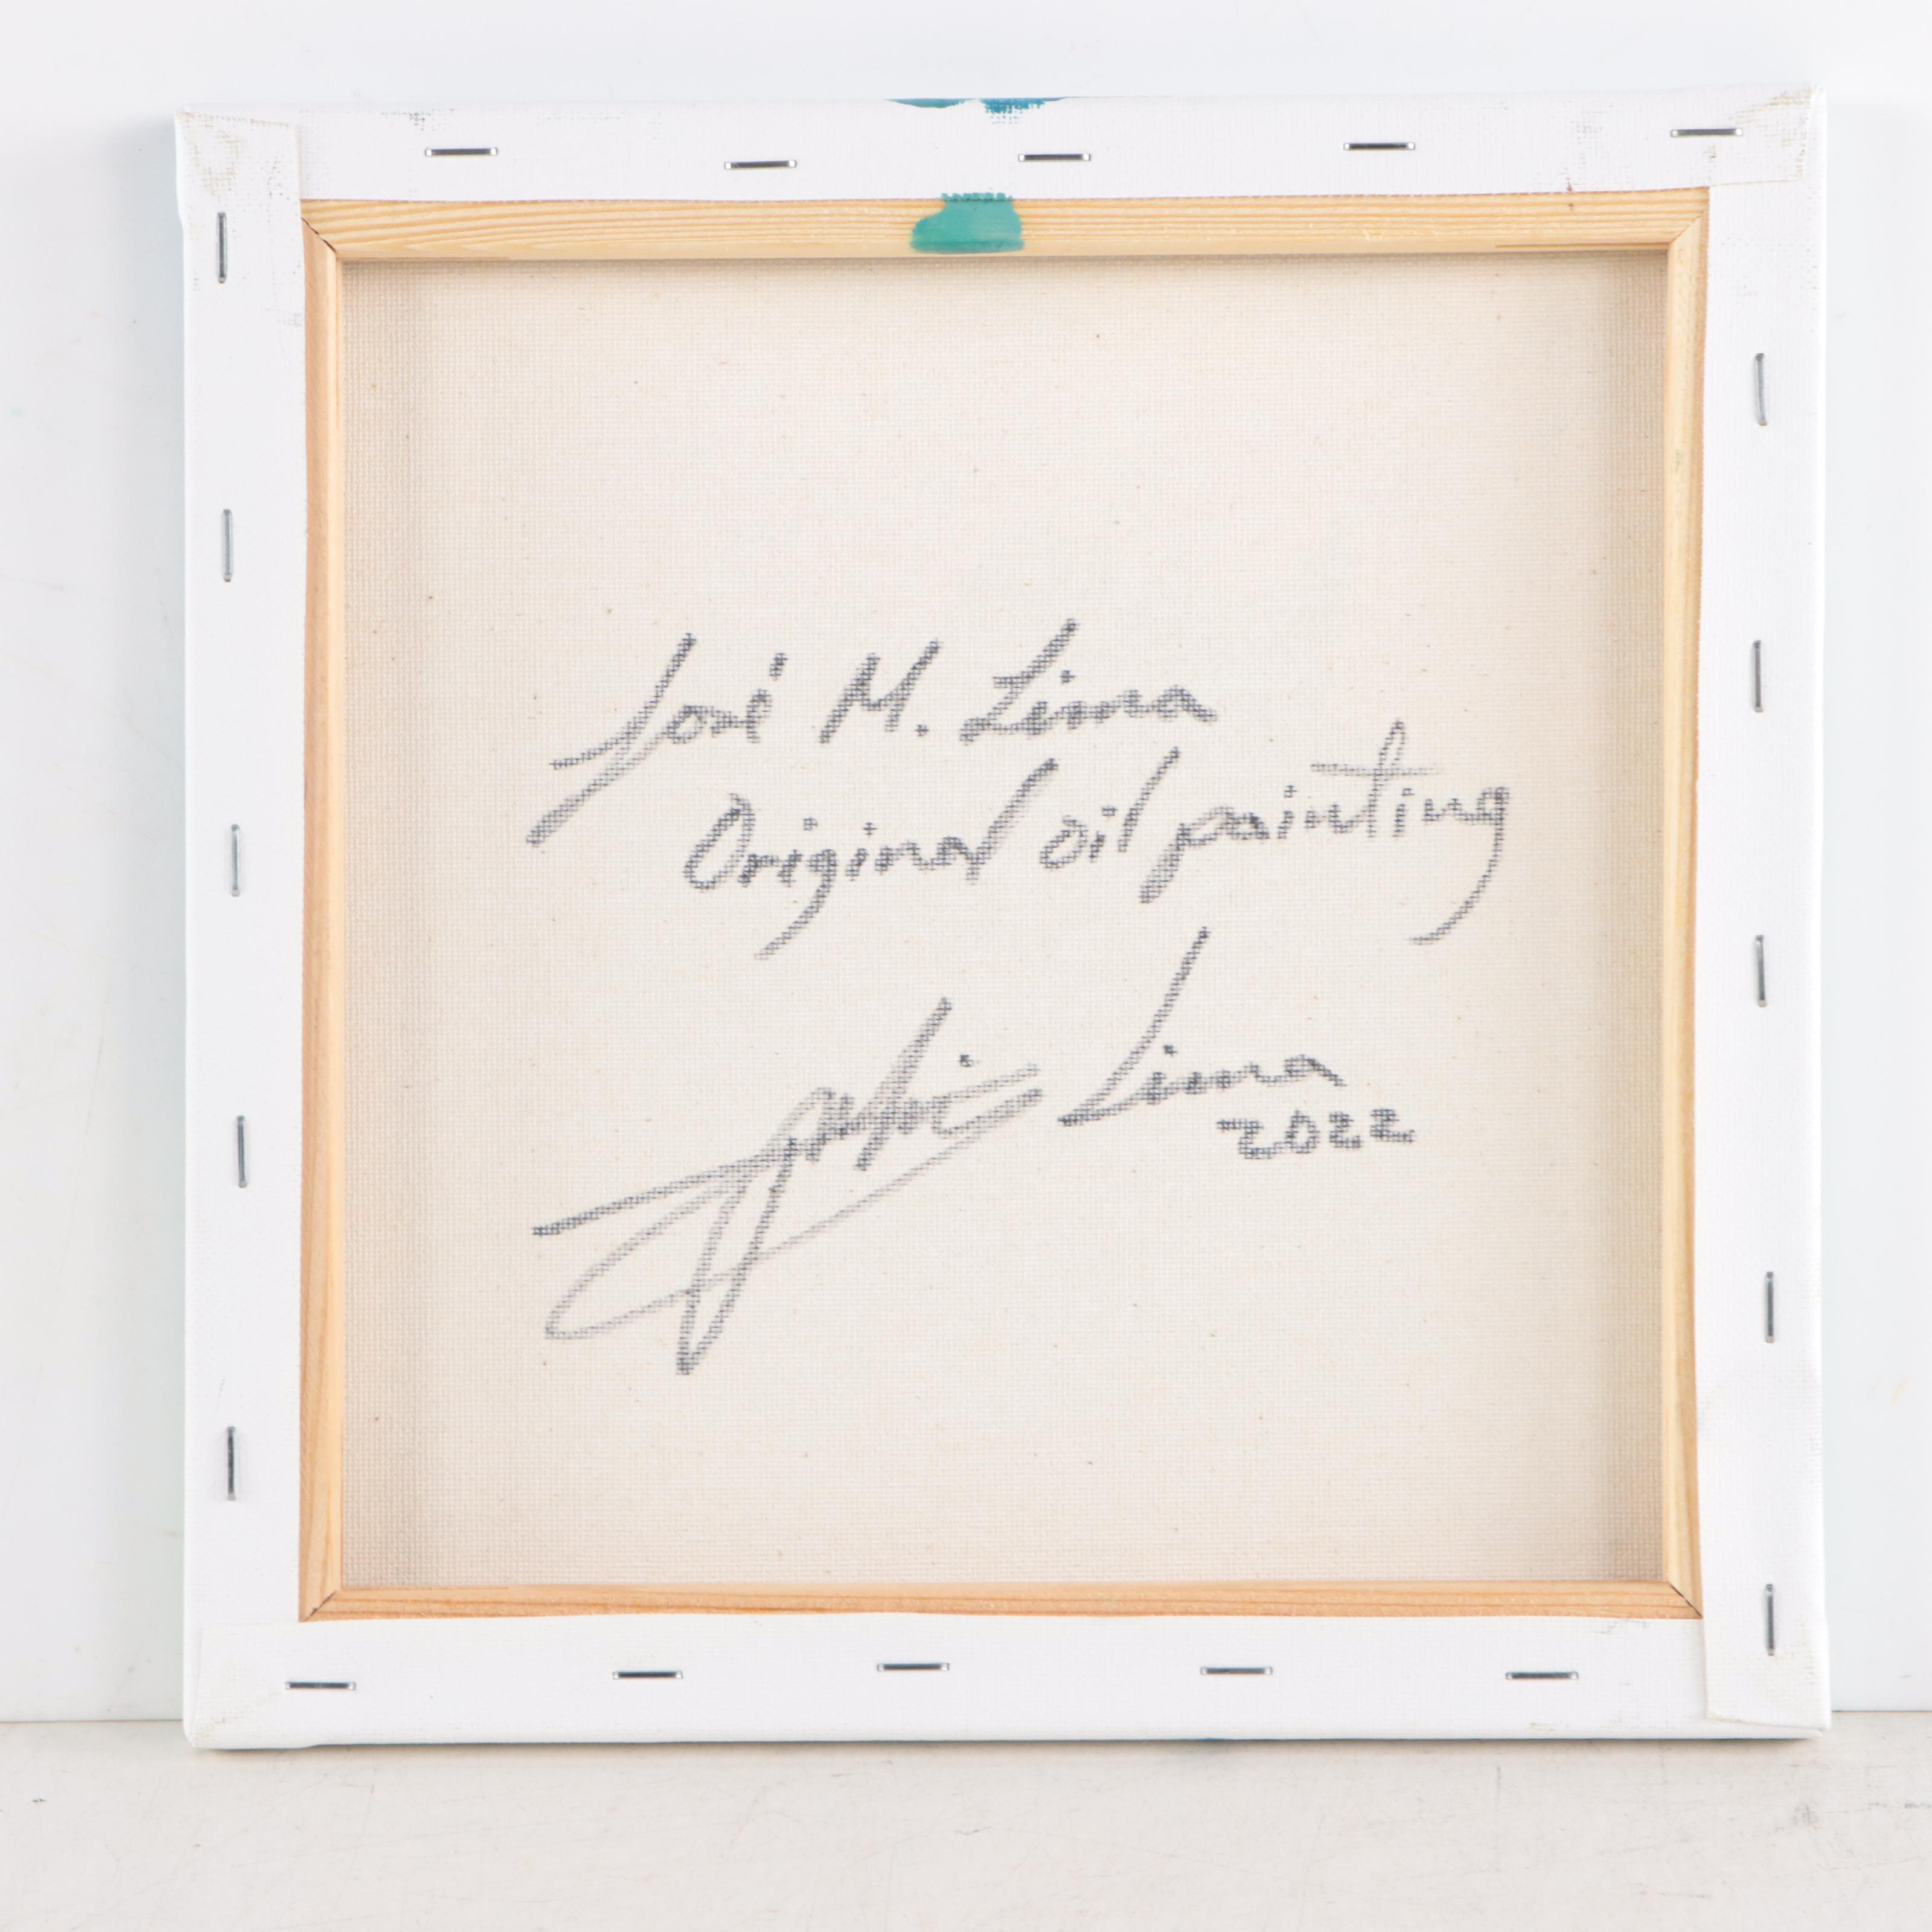 José M. Lima
Original oil painting
Lima
2022